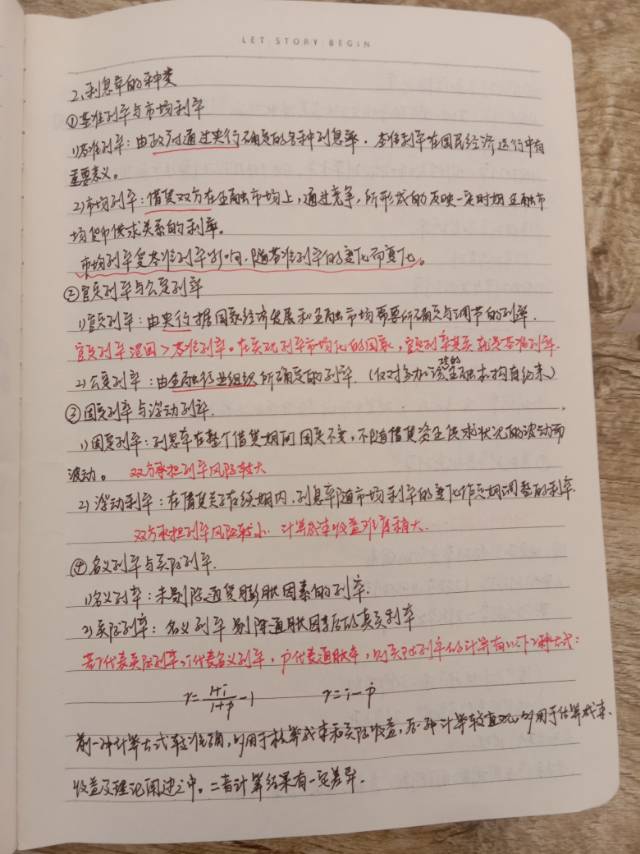 LET STORY BEGIN
2、利息率的种类
①基准利率与市场利率
1)基准利率：由政府通过央行确定的各种利息率．基准利率在国民经济运行中有
重要意义。
2)市场利率：借贷双方在金融市场上，通过竞争，所形成的反映一定时期金融市
场货币供求关系的利率。
市场利率受基准利率影响，随基准利率的变化而变化。
②官定利率与公定利率
1)官定利率：由央行根据国家经济发展和金融市场需要所确定与调节的利率．
官定利率范围>基准利率。在实现利率市场化的国家，官定利率其实就是基准利率．
2)公定利率：由金融行业组织所确定的利率．(仅对参加该组织的金融机构有约束)
③固定利率与浮动利率．
1)固定利率：利息率在整个借贷期间固定不变，不随借贷资金供求状况的波动而
波动。 双方承担利率风险较大
2)浮动利率：在借贷关系存续期内，利息率随市场利率的变化作定期调整的利率．
双方承担利率风险较小．计算成本收益难度稍大．
④名义利率与实际利率．
1)名义利率：未剔除通货膨胀因素的利率．
2)实际利率：名义利率剔除通胀因素后的真实利率
若r代表实际利率，i代表名义利率，ṗ代表通胀率，则实际利率的计算有以下2种方式：
r=(1+i)/(1+ṗ)-1 r=i-ṗ
前一种计算方式较准确，多用于核算成本和实际收益，后一种计算较直观，多用于估算成本、
收益及理论阐述之中。二者计算结果有一定差异．